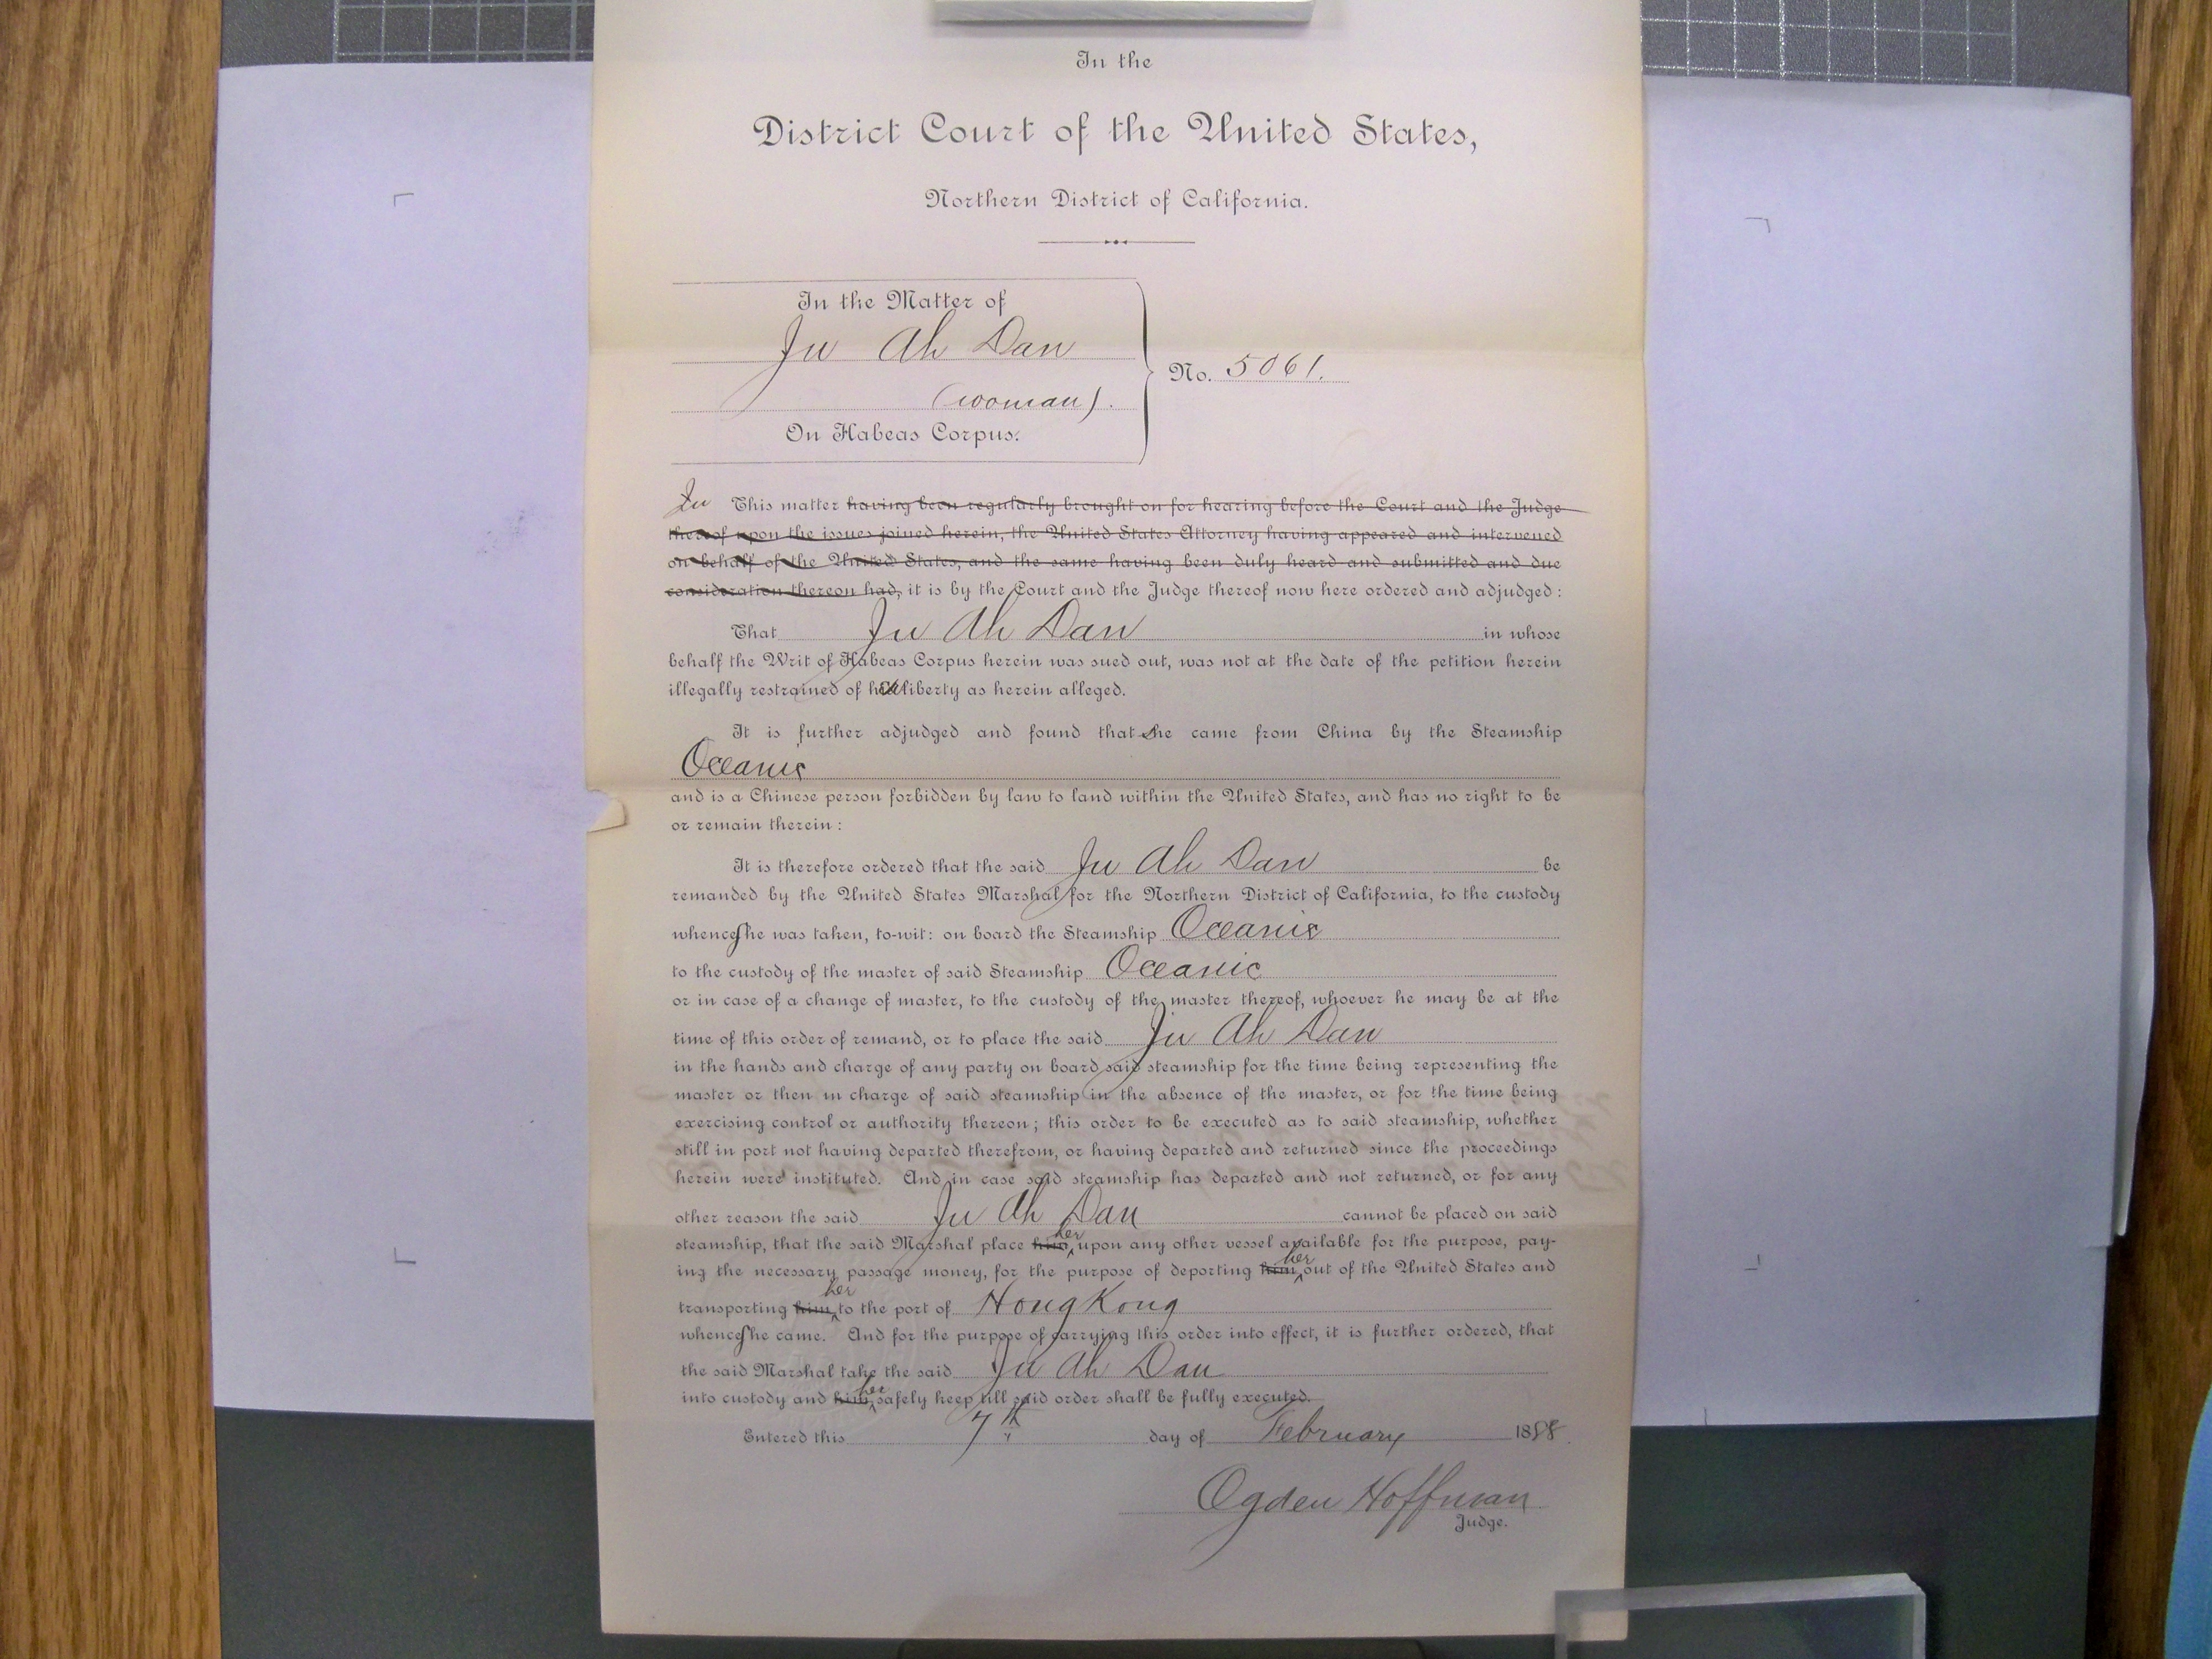 In the
District Court of the United States,
Northern District of California.
In the Matter of
Ju Ah Dan
(woman).
On Habeas Corpus.
No. 5061.
In This matter having been regularly brought on for hearing before the Court and the Judge
thereof upon the issues joined herein, the United States Attorney having appeared and intervened
on behalf of the United States, and the same having been duly heard and submitted and due
consideration thereon had, it is by the Court and the Judge thereof now here ordered and adjudged:
That Ju Ah Dan in whose
behalf the Writ of Habeas Corpus herein was sued out, was not at the date of the petition herein
illegally restrained of her liberty as herein alleged.
It is further adjudged and found that she came from China by the Steamship
Oceanic
and is a Chinese person forbidden by law to land within the United States, and has no right to be
or remain therein:
It is therefore ordered that the said Ju Ah Dan be
remanded by the United States Marshal for the Northern District of California, to the custody
whence she was taken, to-wit: on board the Steamship Oceanic
to the custody of the master of said Steamship Oceanic
or in case of a change of master, to the custody of the master thereof, whoever he may be at the
time of this order of remand, or to place the said Ju Ah Dan
in the hands and charge of any party on board said steamship for the time being representing the
master or then in charge of said steamship in the absence of the master, or for the time being
exercising control or authority thereon; this order to be executed as to said steamship, whether
still in port not having departed therefrom, or having departed and returned since the proceedings
herein were instituted. And in case said steamship has departed and not returned, or for any
other reason the said Ju Ah Dan cannot be placed on said
steamship, that the said Marshal place him her upon any other vessel available for the purpose, pay-
ing the necessary passage money, for the purpose of deporting him her out of the United States and
transporting him her to the port of HongKong
whence she came. And for the purpose of carrying this order into effect, it is further ordered, that
the said Marshal take the said Ju Ah Dan
into custody and him her safely keep till said order shall be fully executed.
Entered this 7th day of February 1888.
Ogden Hoffman
Judge.